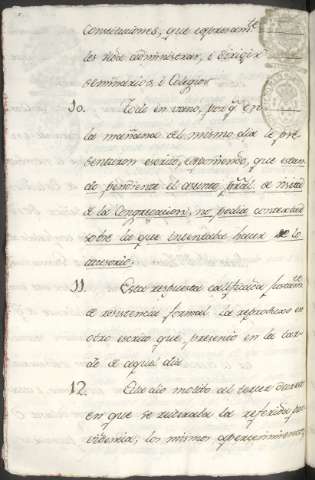 Constituciones, que expresam.te
les vede administrar, i dirigir
Seminarios, i Colegios.
10. Todo en vano, por q.e en
la mañana del mismo dia le pre-
sentaron escrito, exponiendo, que estan-
do pendiente el asunto pral. de
de la Congregacion, no podia contestar
sobre lo que intentaba hacer de lo
accesorio.
11. Esta respuesta calificada justam.te
de resistencia formal la reprodugeron
otro escrito que presentó en la tar-
de de aquel dia.
12. Este dio motivo al tercer Decreto
en que se reiteraba la referida pro-
videncia, los mismos apercevimientos,